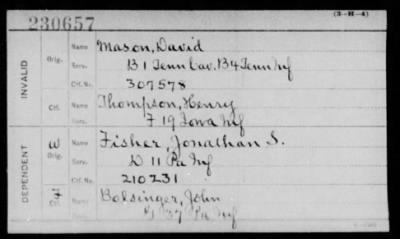 (3-H-4)
230657
INVALID
Orig.
Name Mason, David
Serv. B 1 Tenn Cav. B 4 Tenn Inf
Ctf. No. 307578
Ctf.
Name Thompson, Henry
Serv. F 19 Iowa Inf
DEPENDENT
W Orig.
Name Fisher, Jonathan S.
Serv. D 11 Pa Inf
Ctf. No. 210231
Ctf.
Name Bolsinger, John
37 Pa Inf